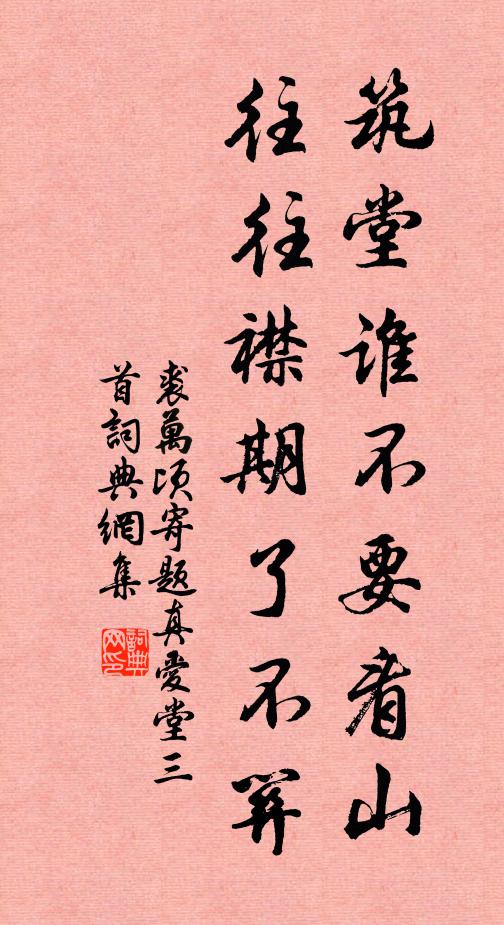 筑堂谁不要看山
往往襟期了不关
裘萬顷寄題真愛堂三
首詞典網集
詞典网印